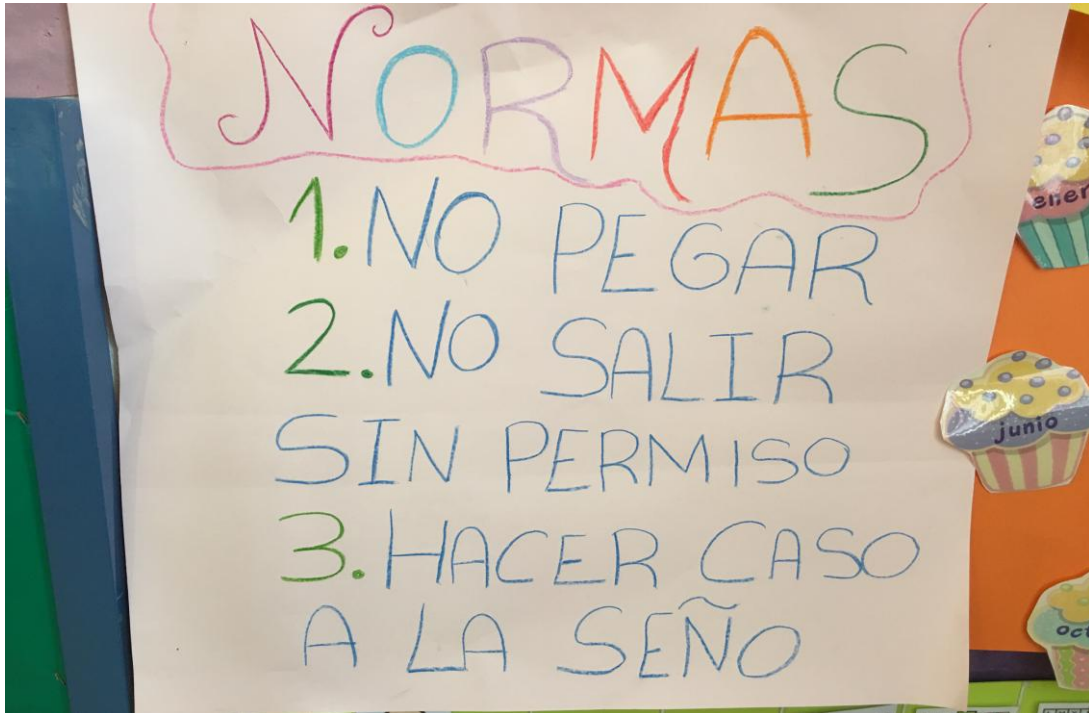 NORMAS
1. NO PEGAR
2. NO SALIR
SIN PERMISO
3. HACER CASO
A LA SEÑO
ener
junio
oct